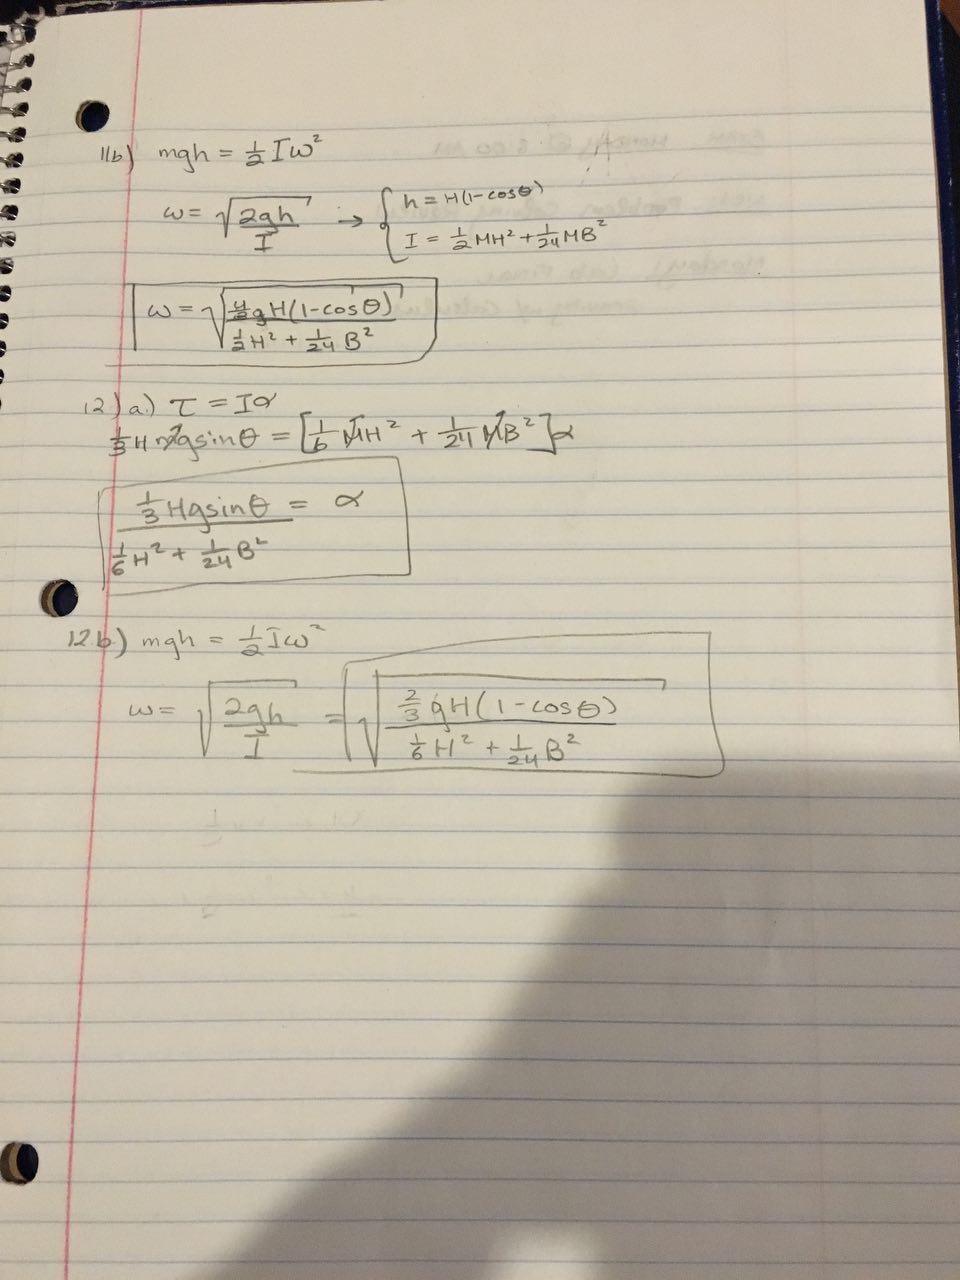 11b) mgh = 1/2 Iω²
ω = √(2gh/I) → { h = H(1-cosθ)
I = 1/2 MH² + 1/24 MB²
ω = √(4/3 gH(1-cosθ) / (1/2 H² + 1/24 B²))
12) a.) τ = Iα
1/3 H mg sinθ = [1/6 MH² + 1/24 MB²]α
(1/3 Hg sinθ) / (1/6 H² + 1/24 B²) = α
12.b.) mgh = 1/2 Iω²
ω = √(2gh/I) = √(2/3 gH(1-cosθ) / (1/6 H² + 1/24 B²))